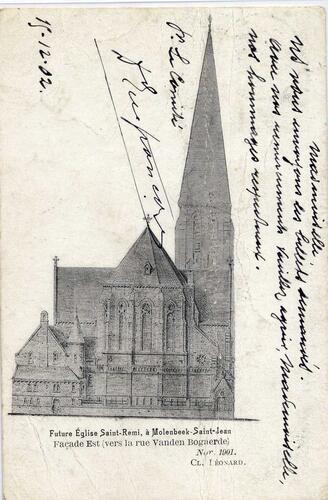 15-12-02.
Pr Le Comité
Mademoiselle,
Nous vous envoyons les billets demandés.
avec nos remerciements veuillez agréer, Mademoiselle,
nos hommages respectueux.
Future Église Saint-Remi, à Molenbeek-Saint-Jean
Façade Est (vers la rue Vanden Bogaerde)
Nov. 1901.
Cl. Léonard.